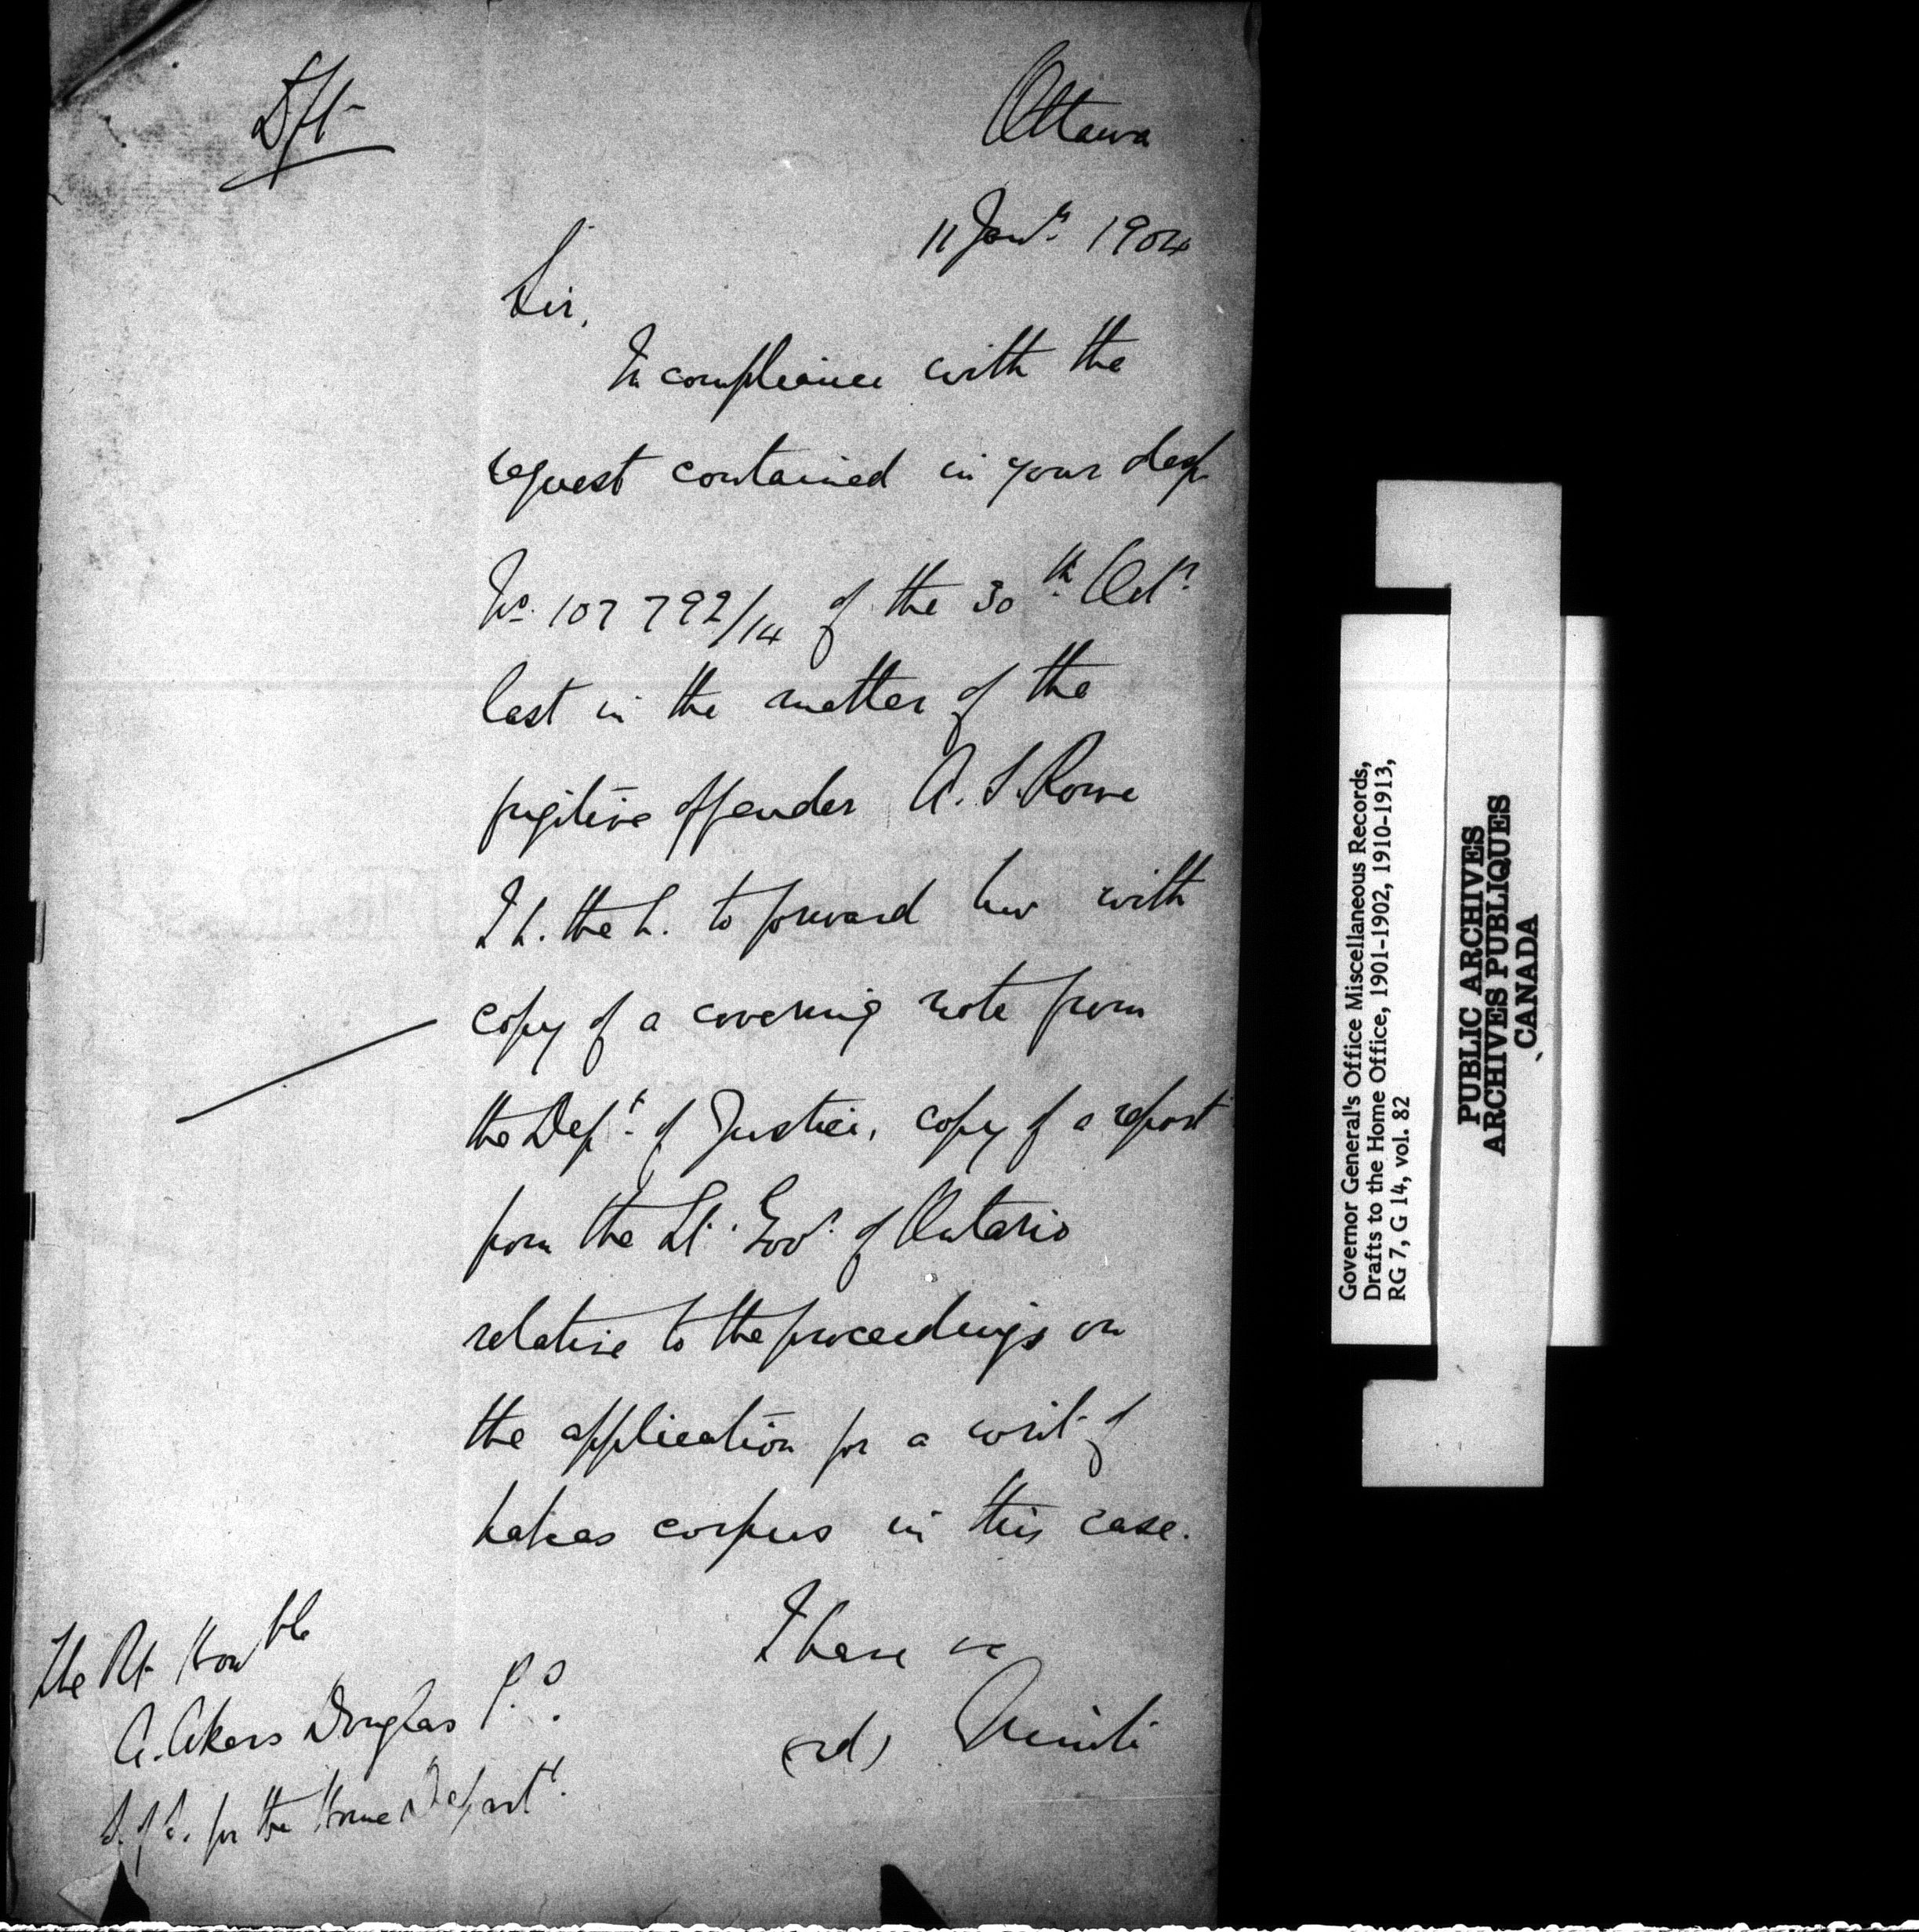 Dft
Ottawa
11 Jany. 1904
Sir,
In compliance with the
request contained in your desp.
No. 107 792/14 of the 30th. Octr.
last in the matter of the
fugitive offender A. S. Rowe
I h. the h. to forward hew with
copy of a covering note from
the Dept. of Justice, copy of a report
from the Lt. Govr. of Ontario
relative to the proceedings on
the application for a writ of
habeas corpus in this case.
I have &c
(sd) Minto
The Rt Honble
A. Akers Douglas P.C.
S. of S. for the Home Departt.
Governor General's Office Miscellaneous Records,
Drafts to the Home Office, 1901-1902, 1910-1913,
RG 7, G 14, vol. 82
PUBLIC ARCHIVES
ARCHIVES PUBLIQUES
CANADA